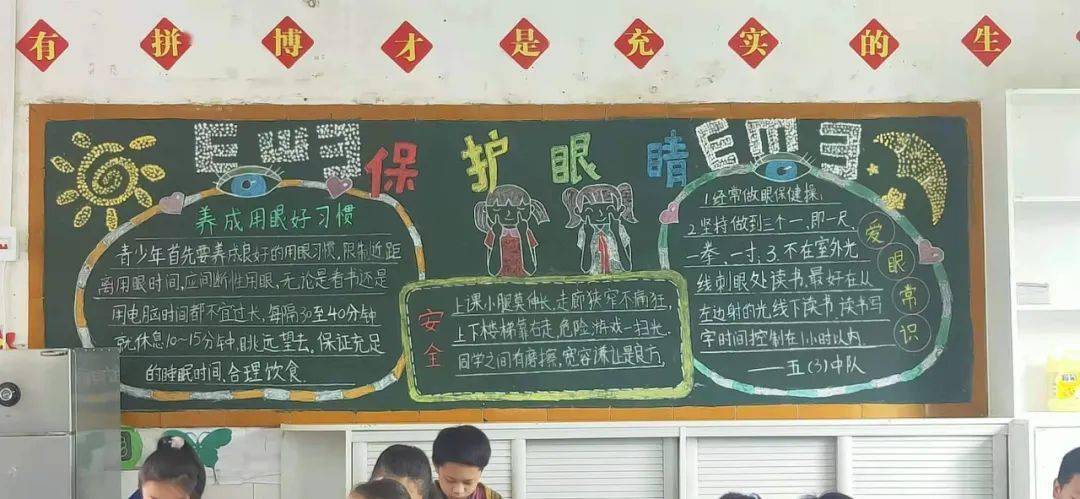 有拼博才是充实的生
E E E 保护眼睛 E E E
养成用眼好习惯
青少年首先要养成良好的用眼习惯,限制近距
离用眼时间,应间断性用眼,无论是看书还是
用电脑时间都不宜过长,每隔30至40分钟
就休息10-15分钟,眺远望去,保证充足
的睡眠时间,合理饮食.
安全
上课小腿莫伸长,走廊狭窄不疯狂,
上下楼梯靠右走,危险游戏一扫光.
同学之间有磨擦,宽容谦让是良方.
1.经常做眼保健操;
2.坚持做到三个一,即一尺、
一拳、一寸;3.不在室外光
线刺眼处读书,最好在从
左边射的光线下读书,读书写
字时间控制在1小时以内.
——五(3)中队
爱眼常识